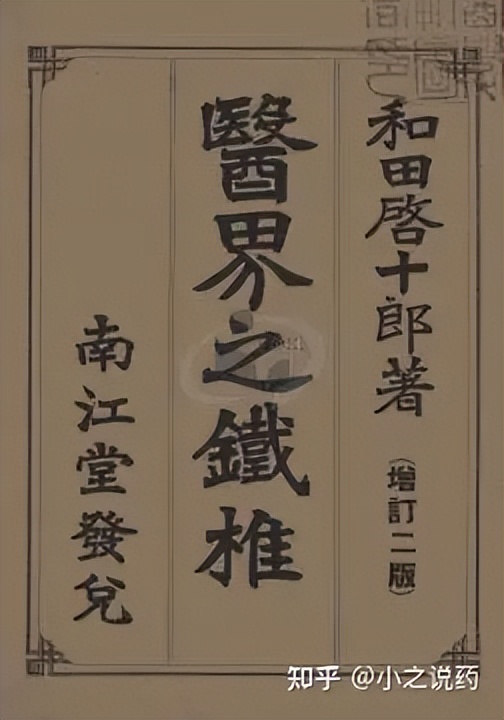 和田啓十郎著
(增訂二版)
醫界之鐵椎
南江堂發兌
知乎 @小之说药